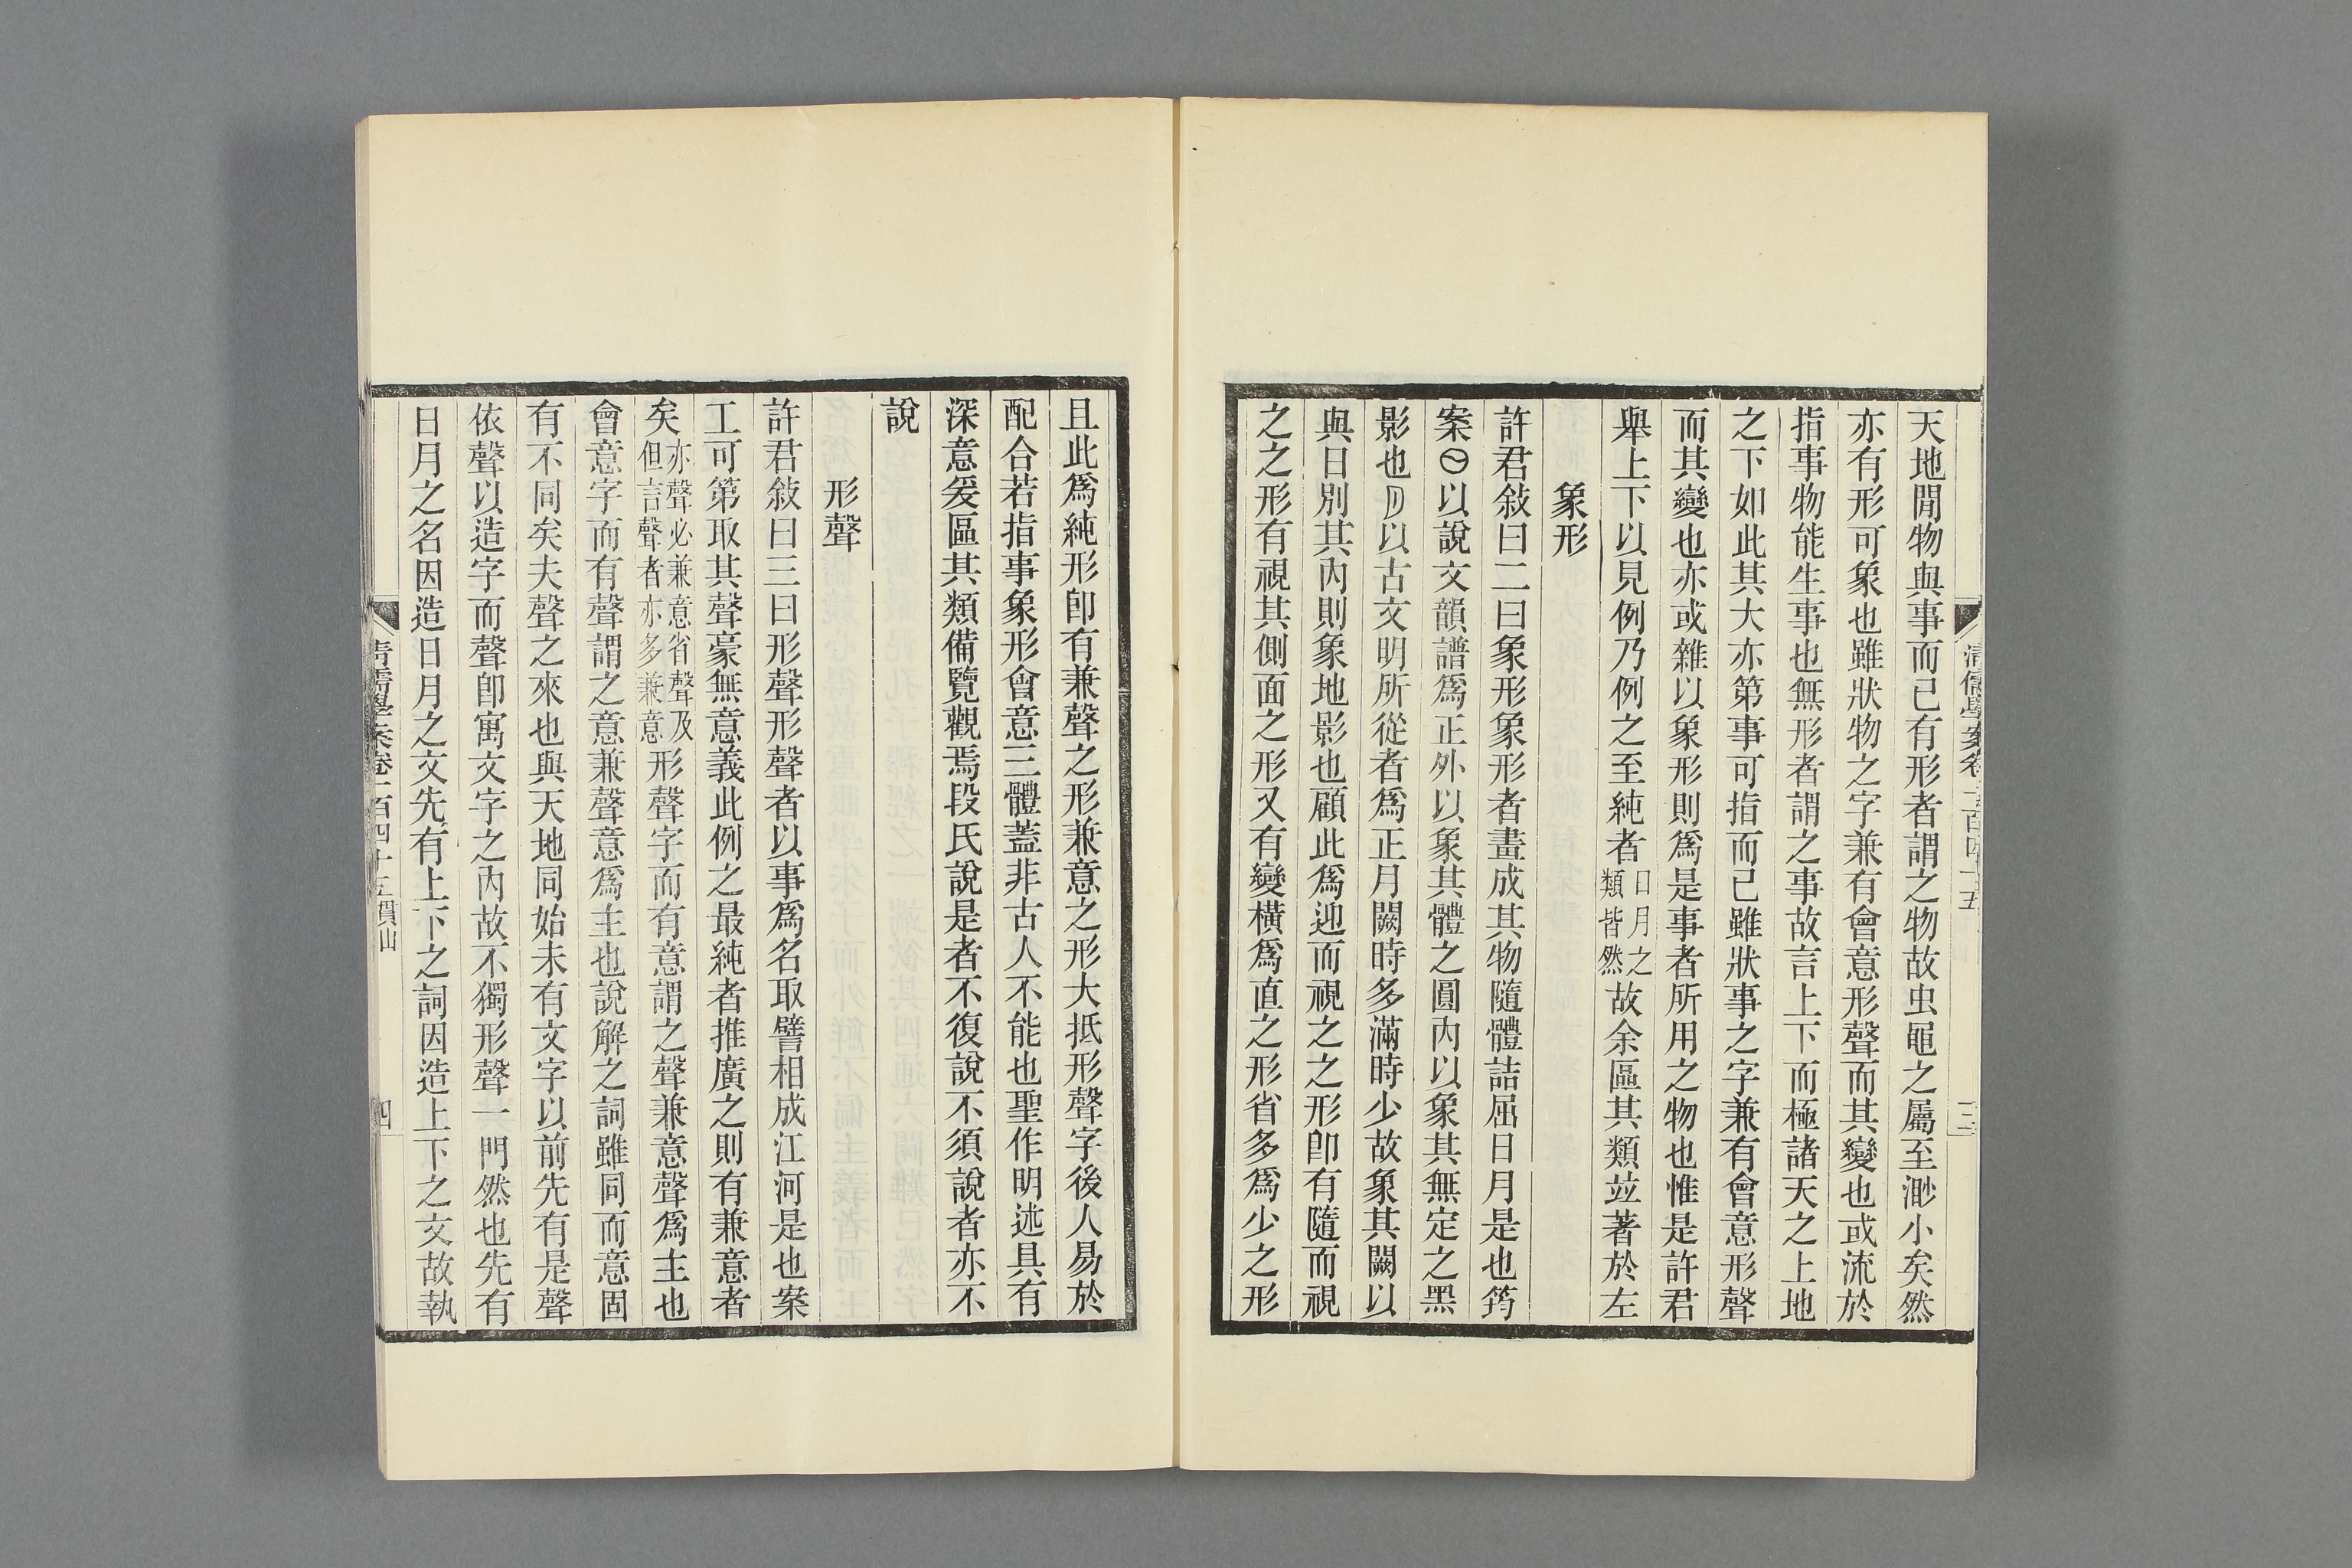 天地閒物與事而已有形者謂之物故虫黽之屬至渺小矣然
亦有形可象也雖狀物之字兼有會意形聲而其變也或流於
指事物能生事也無形者謂之事故言上下而極諸天之上地
之下如此其大亦第事可指而已雖狀事之字兼有會意形聲
而其變也亦或雜以象形則爲是事者所用之物也惟是許君
舉上下以見例乃例之至純者日月之類皆然故余區其類竝著於左
象形
許君敍曰二曰象形象形者畫成其物隨體詰屈日月是也筠
案以說文韻譜爲正外以象其體之圓內以象其無定之黑
影也以古文明所從者爲正月闕時多滿時少故象其闕以
與日別其內則象地影也顧此爲迎而視之之形卽有隨而視
之之形有視其側面之形又有變橫爲直之形省多爲少之形
清儒學案卷一百四十五
三
且此爲純形卽有兼聲之形兼意之形大抵形聲字後人易於
配合若指事象形會意三體蓋非古人不能也聖作明述具有
深意爰區其類備覽觀焉段氏說是者不復說不須說者亦不
說
形聲
許君敍曰三曰形聲形聲者以事爲名取譬相成江河是也案
工可第取其聲豪無意義此例之最純者推廣之則有兼意者
矣亦聲必兼意省聲及但言聲者亦多兼意形聲字而有意謂之聲兼意聲爲主也
會意字而有聲謂之意兼聲意爲主也說解之詞雖同而意固
有不同矣夫聲之來也與天地同始未有文字以前先有是聲
依聲以造字而聲卽寓文字之內故不獨形聲一門然也先有
日月之名因造日月之文先有上下之詞因造上下之文故執
清儒學案卷一百四十五 貫山
四